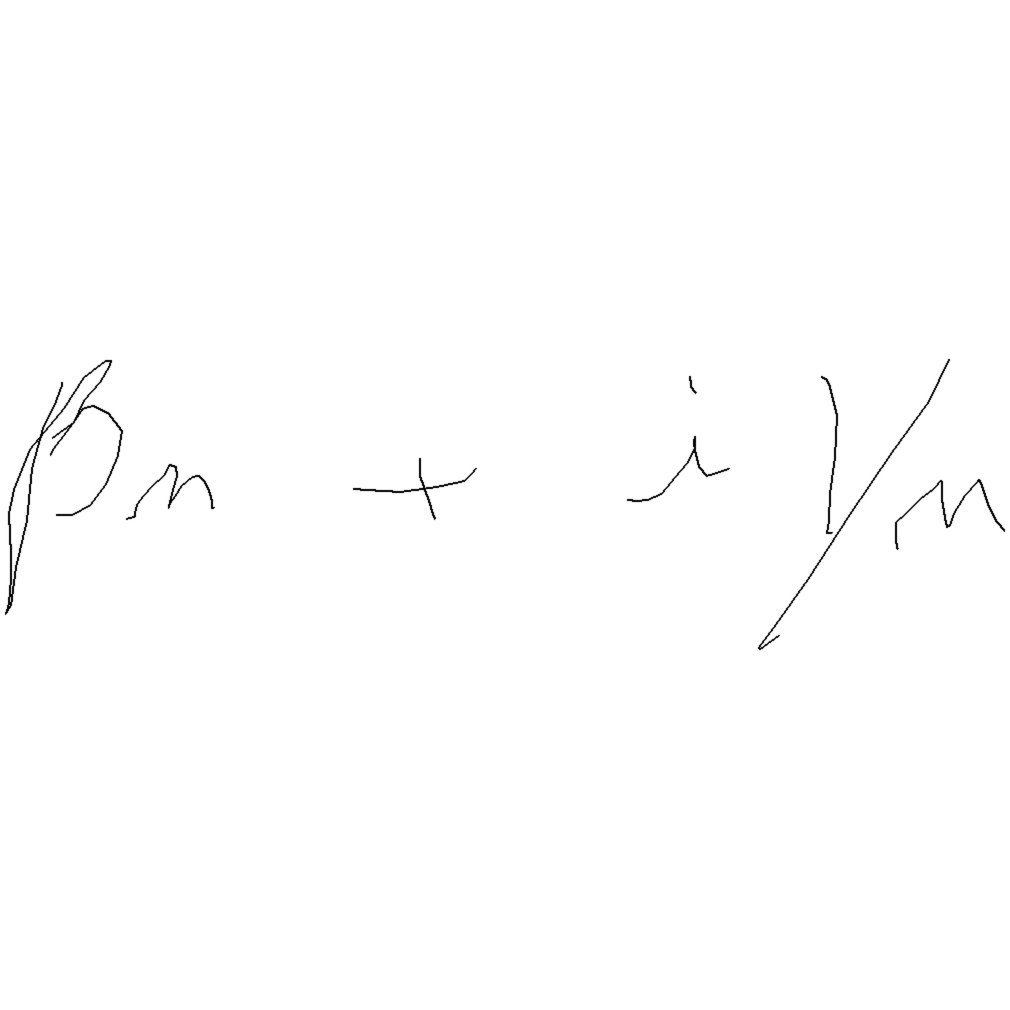 βn + iγn